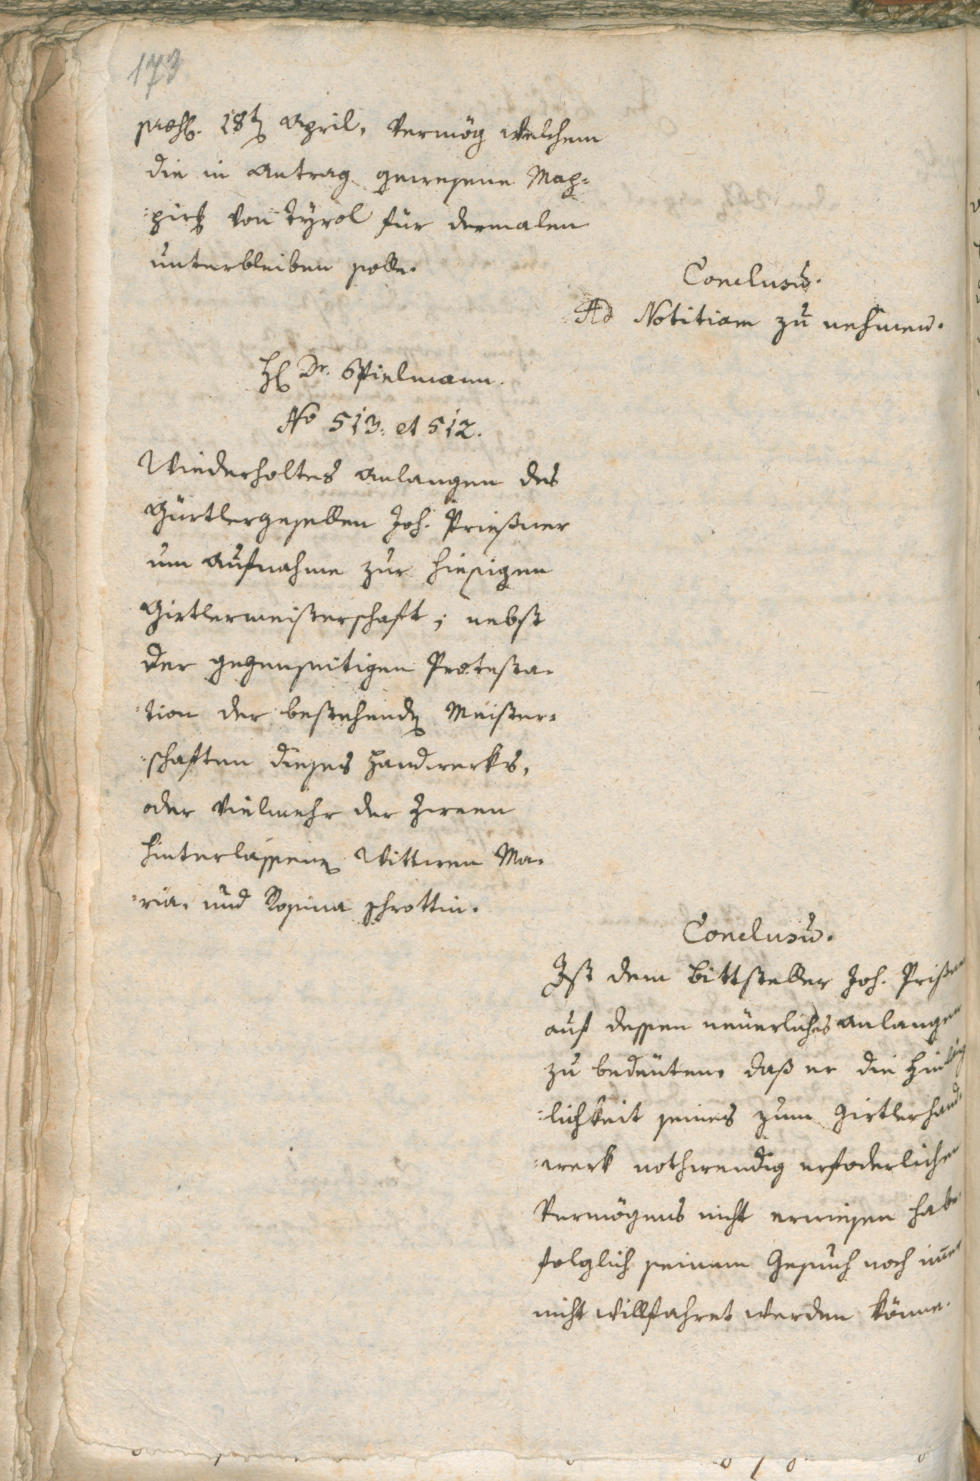 173
præs. 18t April, vermög welchem
die in Antrag gewesene Map-
:pirg von Tÿrol für dermalen
unterbleiben solle.
Conclusum.
Ad Notitiam zu nehmen.
H. Dr. Spielmann.
No 513. et 512.
Wiederholtes Anlangen des
Gürtlergesellen Joh. Prießner
um Aufnahme zur hiesigen
Girtlermeisterschaft; nebst
der gegenseitigen Protesta-
:tion der bestehenden Meister-
:schaften dieses Handwerks,
oder vielmehr der zween
hinterlassenen Wittwen Ma-
:ria, und Rosina Schrottin.
Conclusum.
Ist dem Bittsteller Joh. Prißner
auf dessen neuerliches Anlangen
zu bedeuten, daß er die Hinläng
:lichkeit seines zum Girtlerhand
:werk nothwendig erfoderlichen
Vermögens nicht erwiesen habe
folglich seinem Gesuch noch immer
nicht willfahret werden könne.